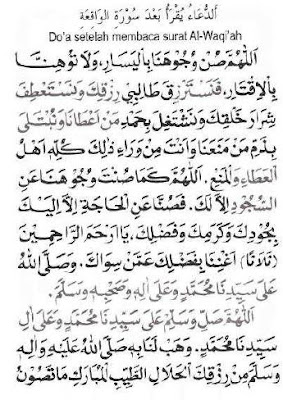 اَلدُّعَاءُ يُقْرَأُ بَعْدَ سُوْرَةِ الْوَاقِعَةِ
Do'a setelah membaca surat Al-Waqi'ah
اَللّٰهُمَّ صُنْ وُجُوْهَنَا بِالْيَسَارِ، وَلَا تُوْهِنَّا
بِالْاِقْتَارِ، فَنَسْتَرْزِقَ طَالِبِيْ رِزْقِكَ وَنَسْتَعْطِفَ
شِرَارَ خَلْقِكَ وَنَشْتَغِلَ بِحَمْدِ مَنْ اَعْطَانَا وَنُبْتَلٰى
بِذَمِّ مَنْ مَنَعَنَا وَاَنْتَ مِنْ وَرَاءِ ذٰلِكَ كُلِّهِ اَهْلُ
الْعَطَاءِ وَالْمَنْعِ. اَللّٰهُمَّ كَمَا صُنْتَ وُجُوْهَنَا عَنِ
السُّجُوْدِ اِلَّا لَكَ. فَصُنَّا عَنِ الْحَاجَةِ اِلَّا اِلَيْكَ
بِجُوْدِكَ وَكَرَمِكَ وَفَضْلِكَ، يَا اَرْحَمَ الرَّاحِمِيْنَ
(ثَلَاثًا) اَغْنِنَا بِفَضْلِكَ عَمَّنْ سِوَاكَ. وَصَلَّى اللهُ
عَلٰى سَيِّدِنَا مُحَمَّدٍ وَعَلٰى اٰلِهِ وَصَحْبِهِ وَسَلَّمَ.
اَللّٰهُمَّ صَلِّ وَسَلِّمْ عَلٰى سَيِّدِنَا مُحَمَّدٍ وَعَلٰى اٰلِ
سَيِّدِنَا مُحَمَّدٍ. وَهَبْ لَنَا بِهِ صَلَّى اللهُ عَلَيْهِ وَاٰلِهِ
وَسَلَّمَ مِنْ رِزْقِكَ الْحَلَالِ الطَّيِّبِ الْمُبَارَكِ مَا تَصُوْنُ